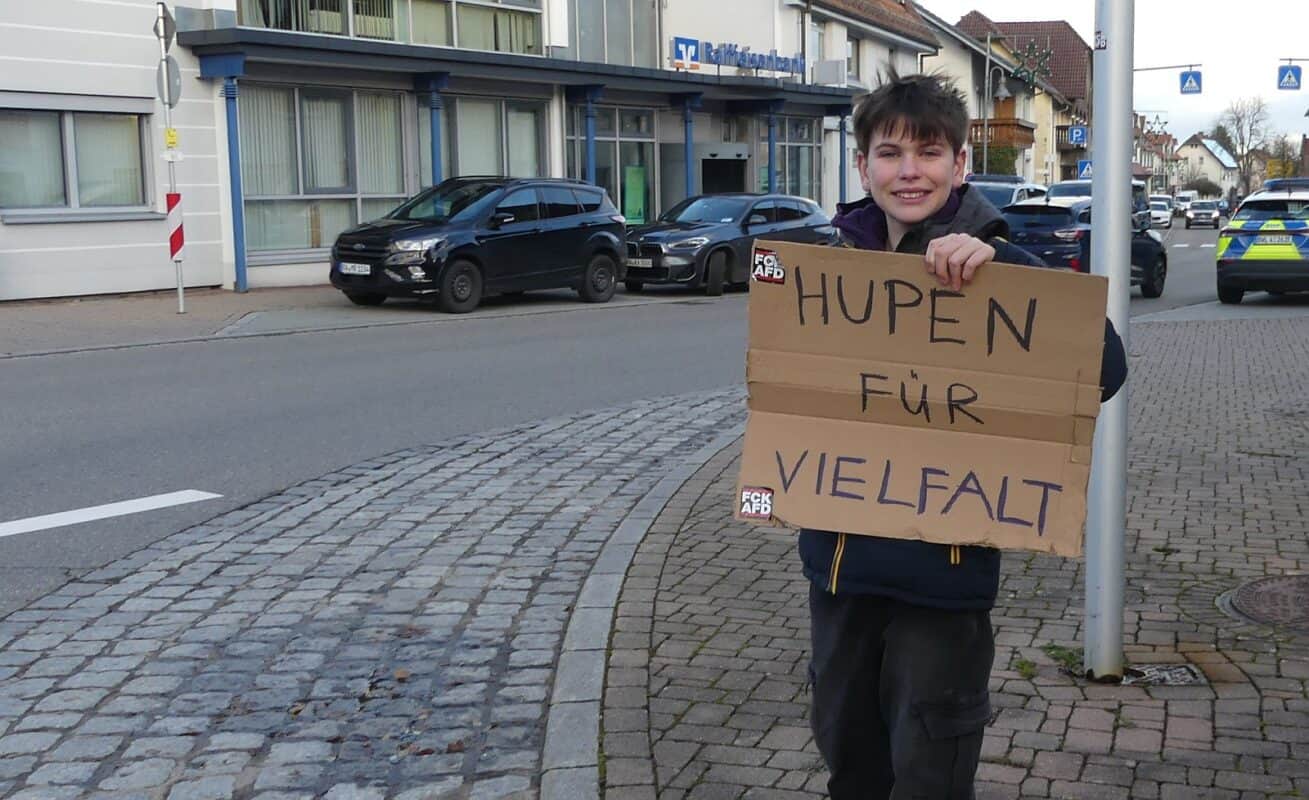 Raiffeisenbank
P
FCK
AFD
HUPEN
FÜR
VIELFALT
FCK
AFD